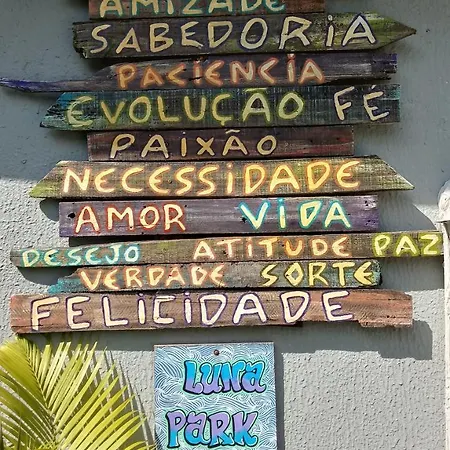 AMIZADE
SABEDORIA
PACIENCIA
EVOLUÇÃO FÉ
PAIXÃO
NECESSIDADE
AMOR VIDA
DESEJO ATITUDE PAZ
VERDADE SORTE
FELICIDADE
LUNA
PARK